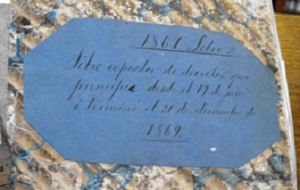 1861 Libro 2
Libro copiador de decretos que
principia desde el 19 de
i termina el 21 de diciembre de
1869.